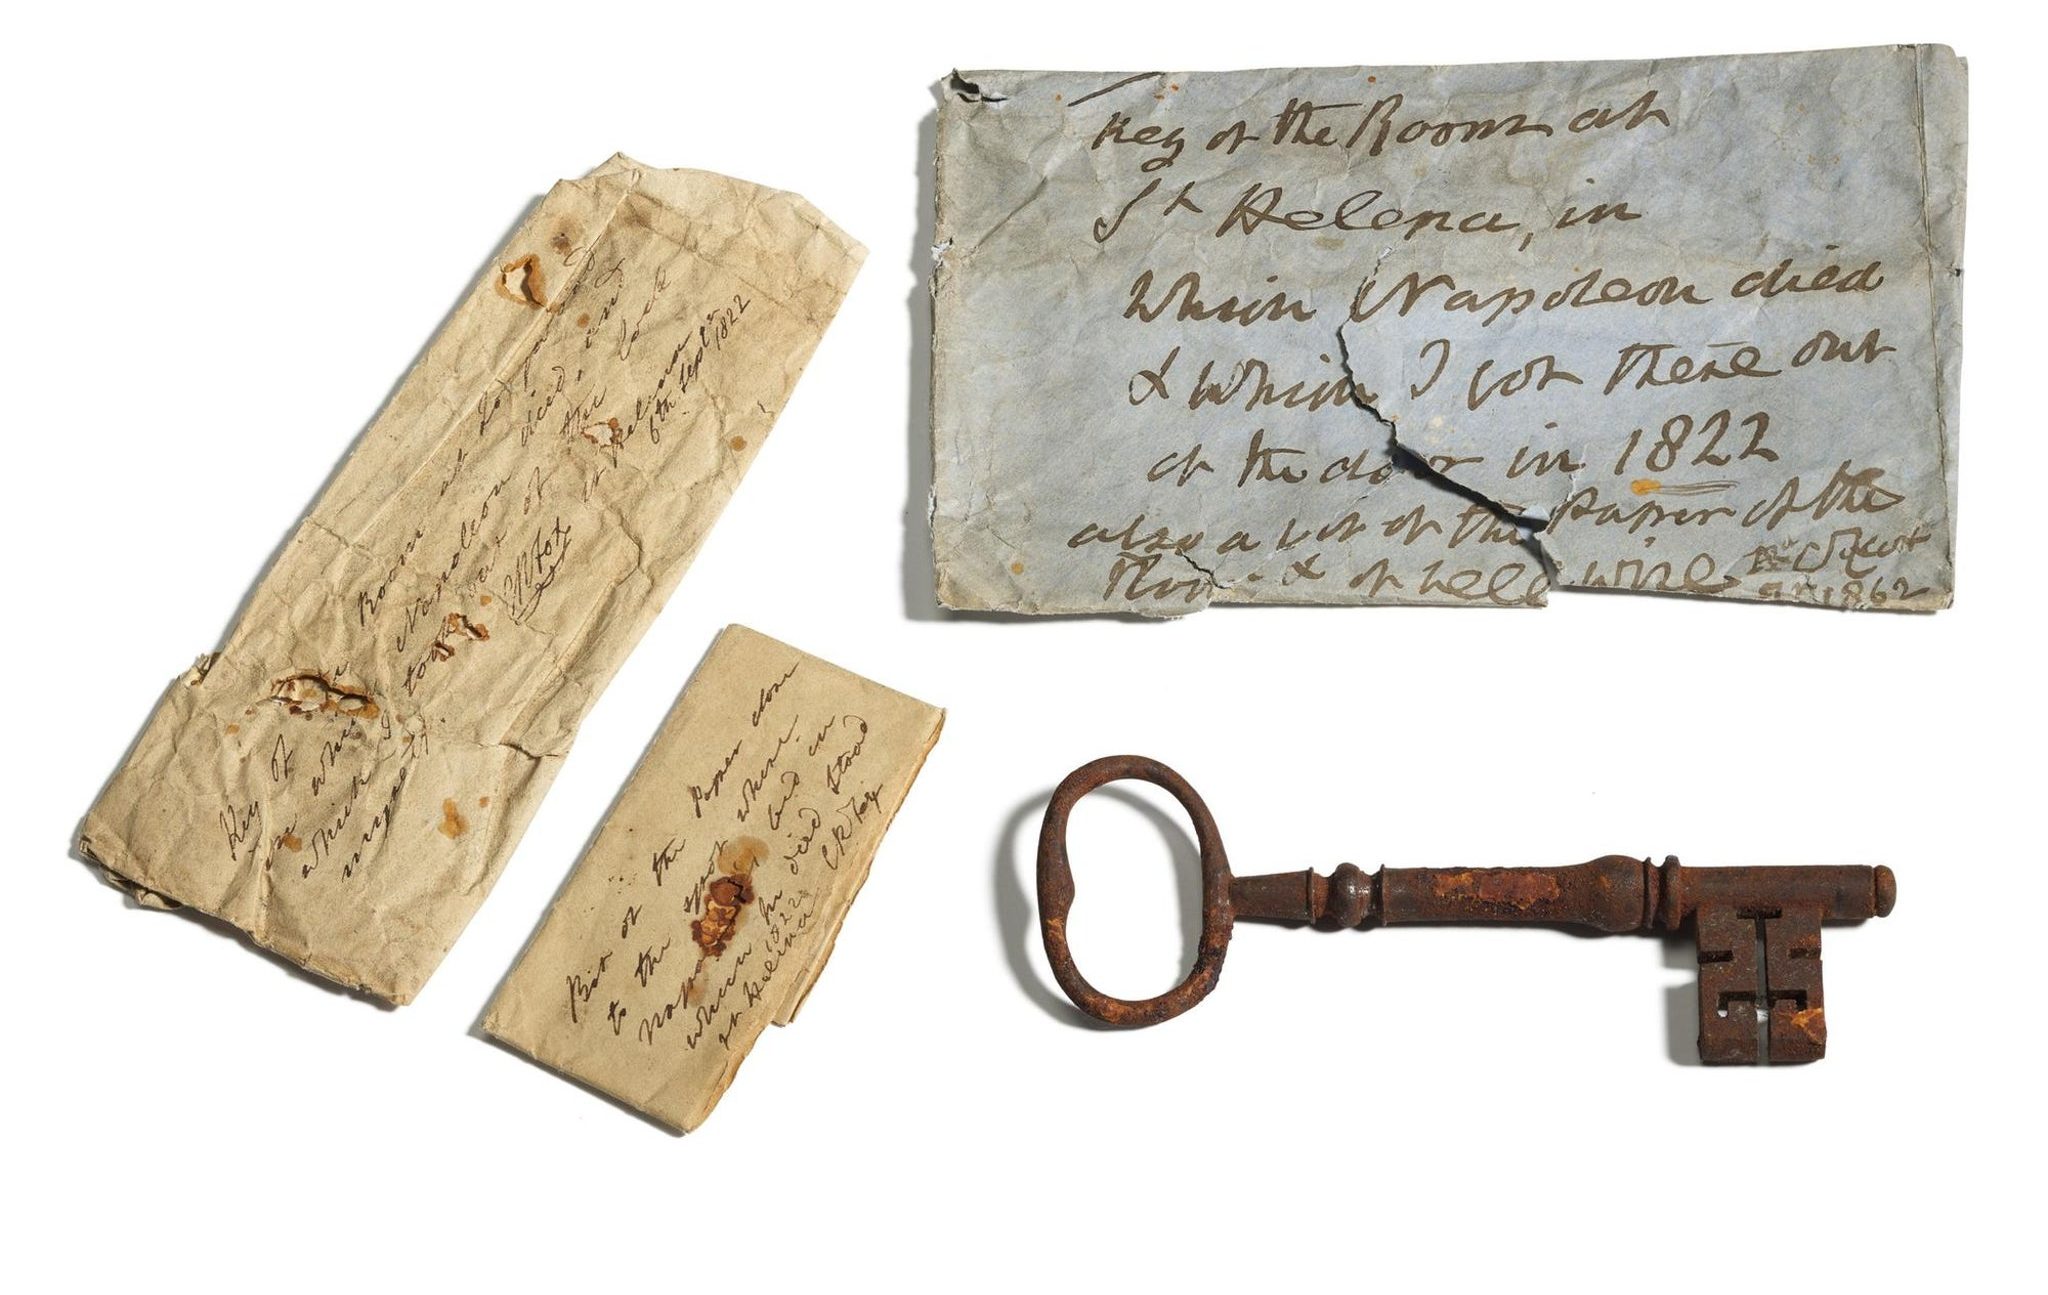 Key of the Room at
Longwood
in which Napoleon died, and
which I took out of the lock
myself.
St Helena
6th Sept 1822
CR Fox
Bit of the Paper close
to the spot where
Napoleon's bed in
which he died stood
St Helena 1822
CR Fox
Key of the Room at
St Helena, in
which Napoleon died
& which I got there out
of the door in 1822
also a bit of the Paper of the
Room &
1862